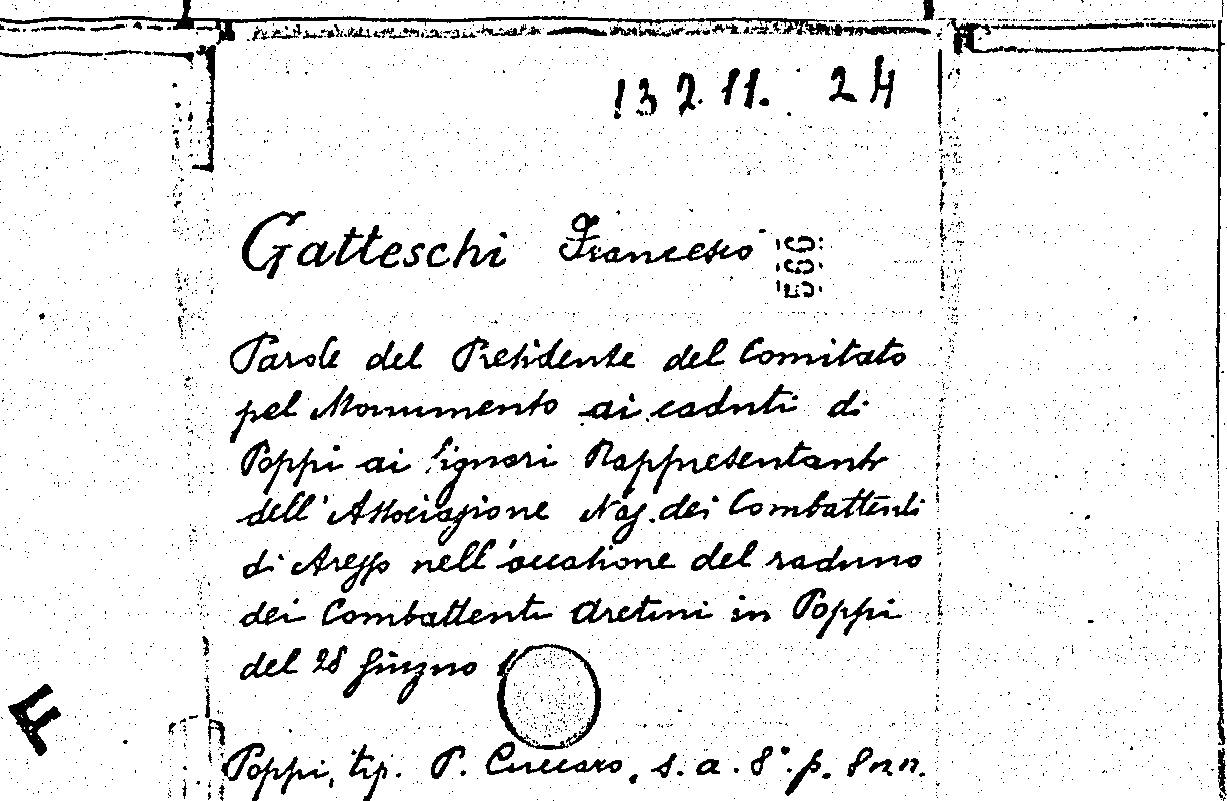 132.11. 24
Gatteschi Francesco 566
Parole del Presidente del Comitato
pel Monumento ai caduti di
Poppi ai Signori Rappresentanti
dell'Associazione Naz. dei Combattenti
di Arezzo nell'occasione del raduno
dei Combattenti Aretini in Poppi
del 28 Giugno
Poppi, tip. P. Cuccaro, s.a. 8°. p. 8 n.n.
F